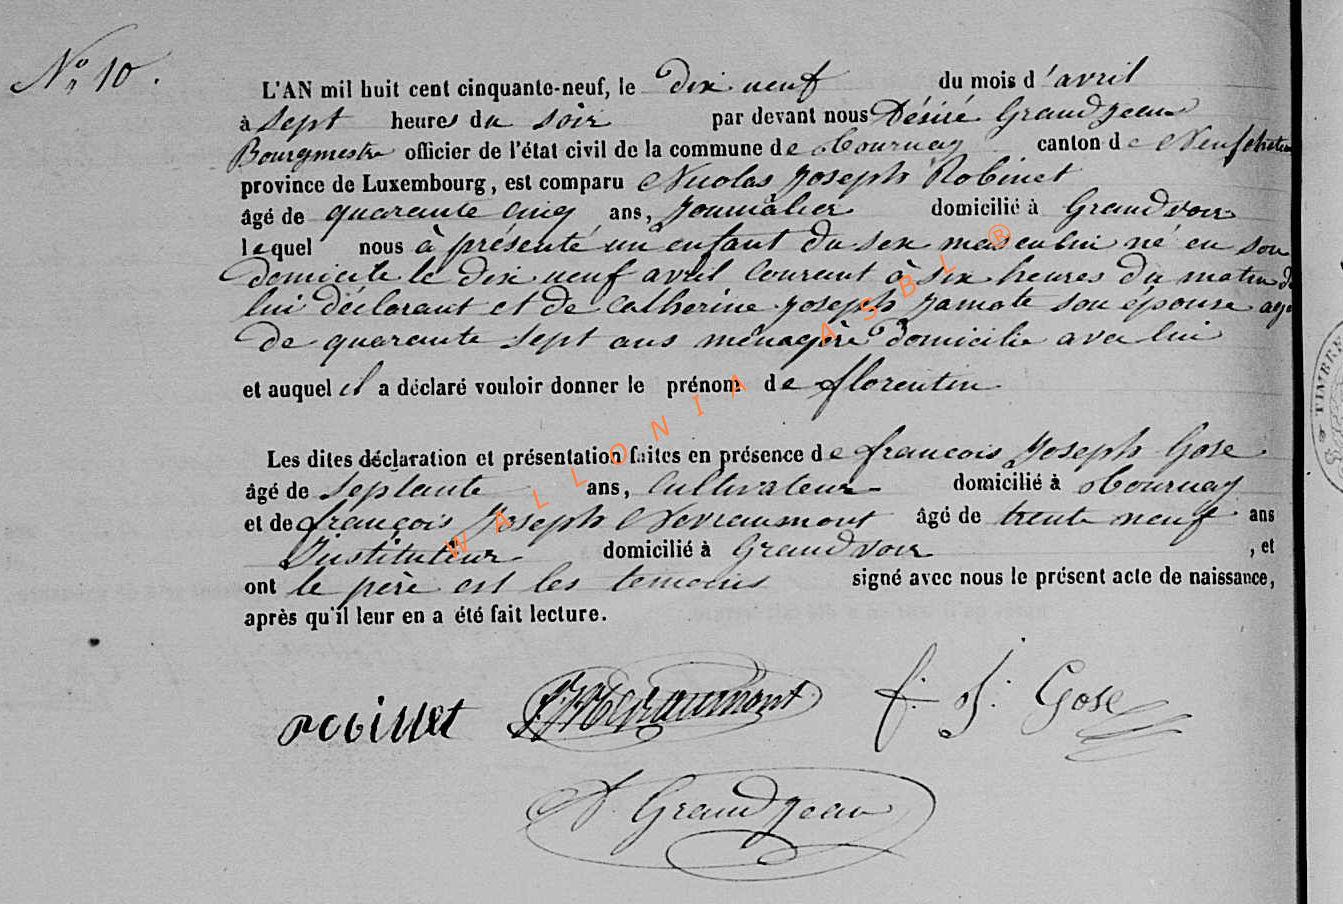 No 10.
L'AN mil huit cent cinquante-neuf, le dix neuf du mois d'avril
à sept heures du soir par devant nous Désiré Grandjean
Bourgmestre officier de l'état civil de la commune de Tournay canton de Neufchateau
province de Luxembourg, est comparu Nicolas Joseph Robinet
âgé de quarante cinq ans, journalier domicilié à Grandvoir
lequel nous à présenté un enfant du sex masculin né en son
domicile le dix neuf avril courant à six heures du matin de
lui déclarant et de Catherine Joseph Jamote son épouse agée
de quarante sept ans ménagère domicilie avec lui
et auquel il a déclaré vouloir donner le prénom de florentin
Les dites déclaration et présentation faites en présence de francois Joseph Gose
âgé de septante ans, Cultivateur domicilié à Tournay
et de françois Joseph Nevraumont âgé de trente neuf ans
Instituteur domicilié à Grandvoir , et
ont le père est les temoins signé avec nous le présent acte de naissance,
après qu'il leur en a été fait lecture.
robinet F. J. Nevraumont f. J. Gose
D. Grandjean
WALLONIA ASBL ®
TIMBRE